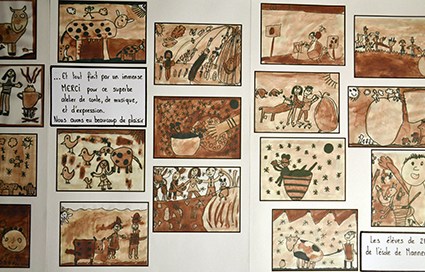 ...Et tout finit par un immense
MERCI pour ce superbe
atelier de conte, de musique,
et d'expression.
Nous avons eu beaucoup de plaisir
Les élèves de
de l'école de